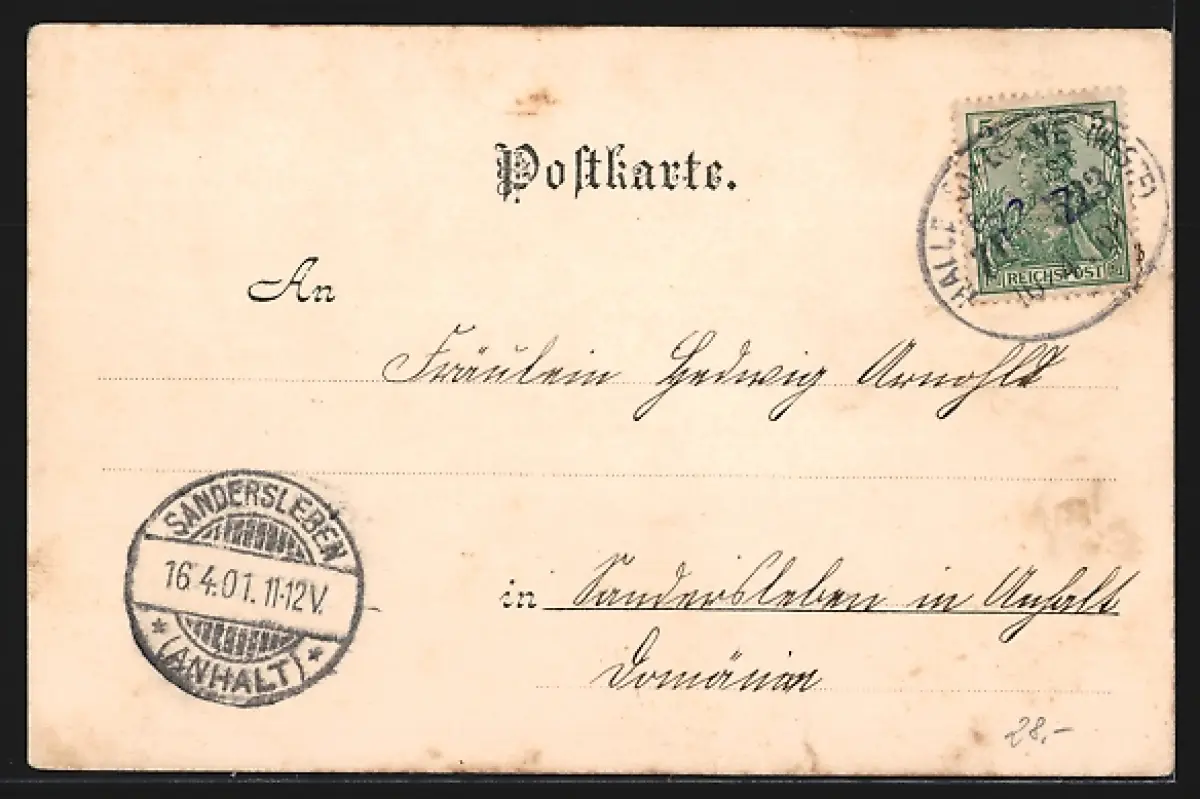 Postkarte.
5 5
REICHSPOST
HALLE
An
Fräulein Hedwig Arnholdt
SANDERSLEBEN
16.4.01. 11-12V.
* (ANHALT) *
in Sandersleben in Anhalt
Domäne
28.-